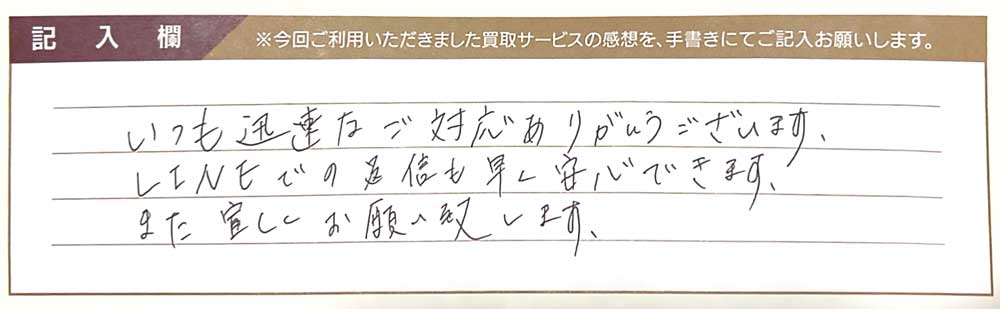 記入欄
※今回ご利用いただきました買取サービスの感想を、手書きにてご記入お願いします。
いつも迅速なご対応ありがとうございます、
LINEでの返信も早く安心できます、
また宜しくお願い致します、